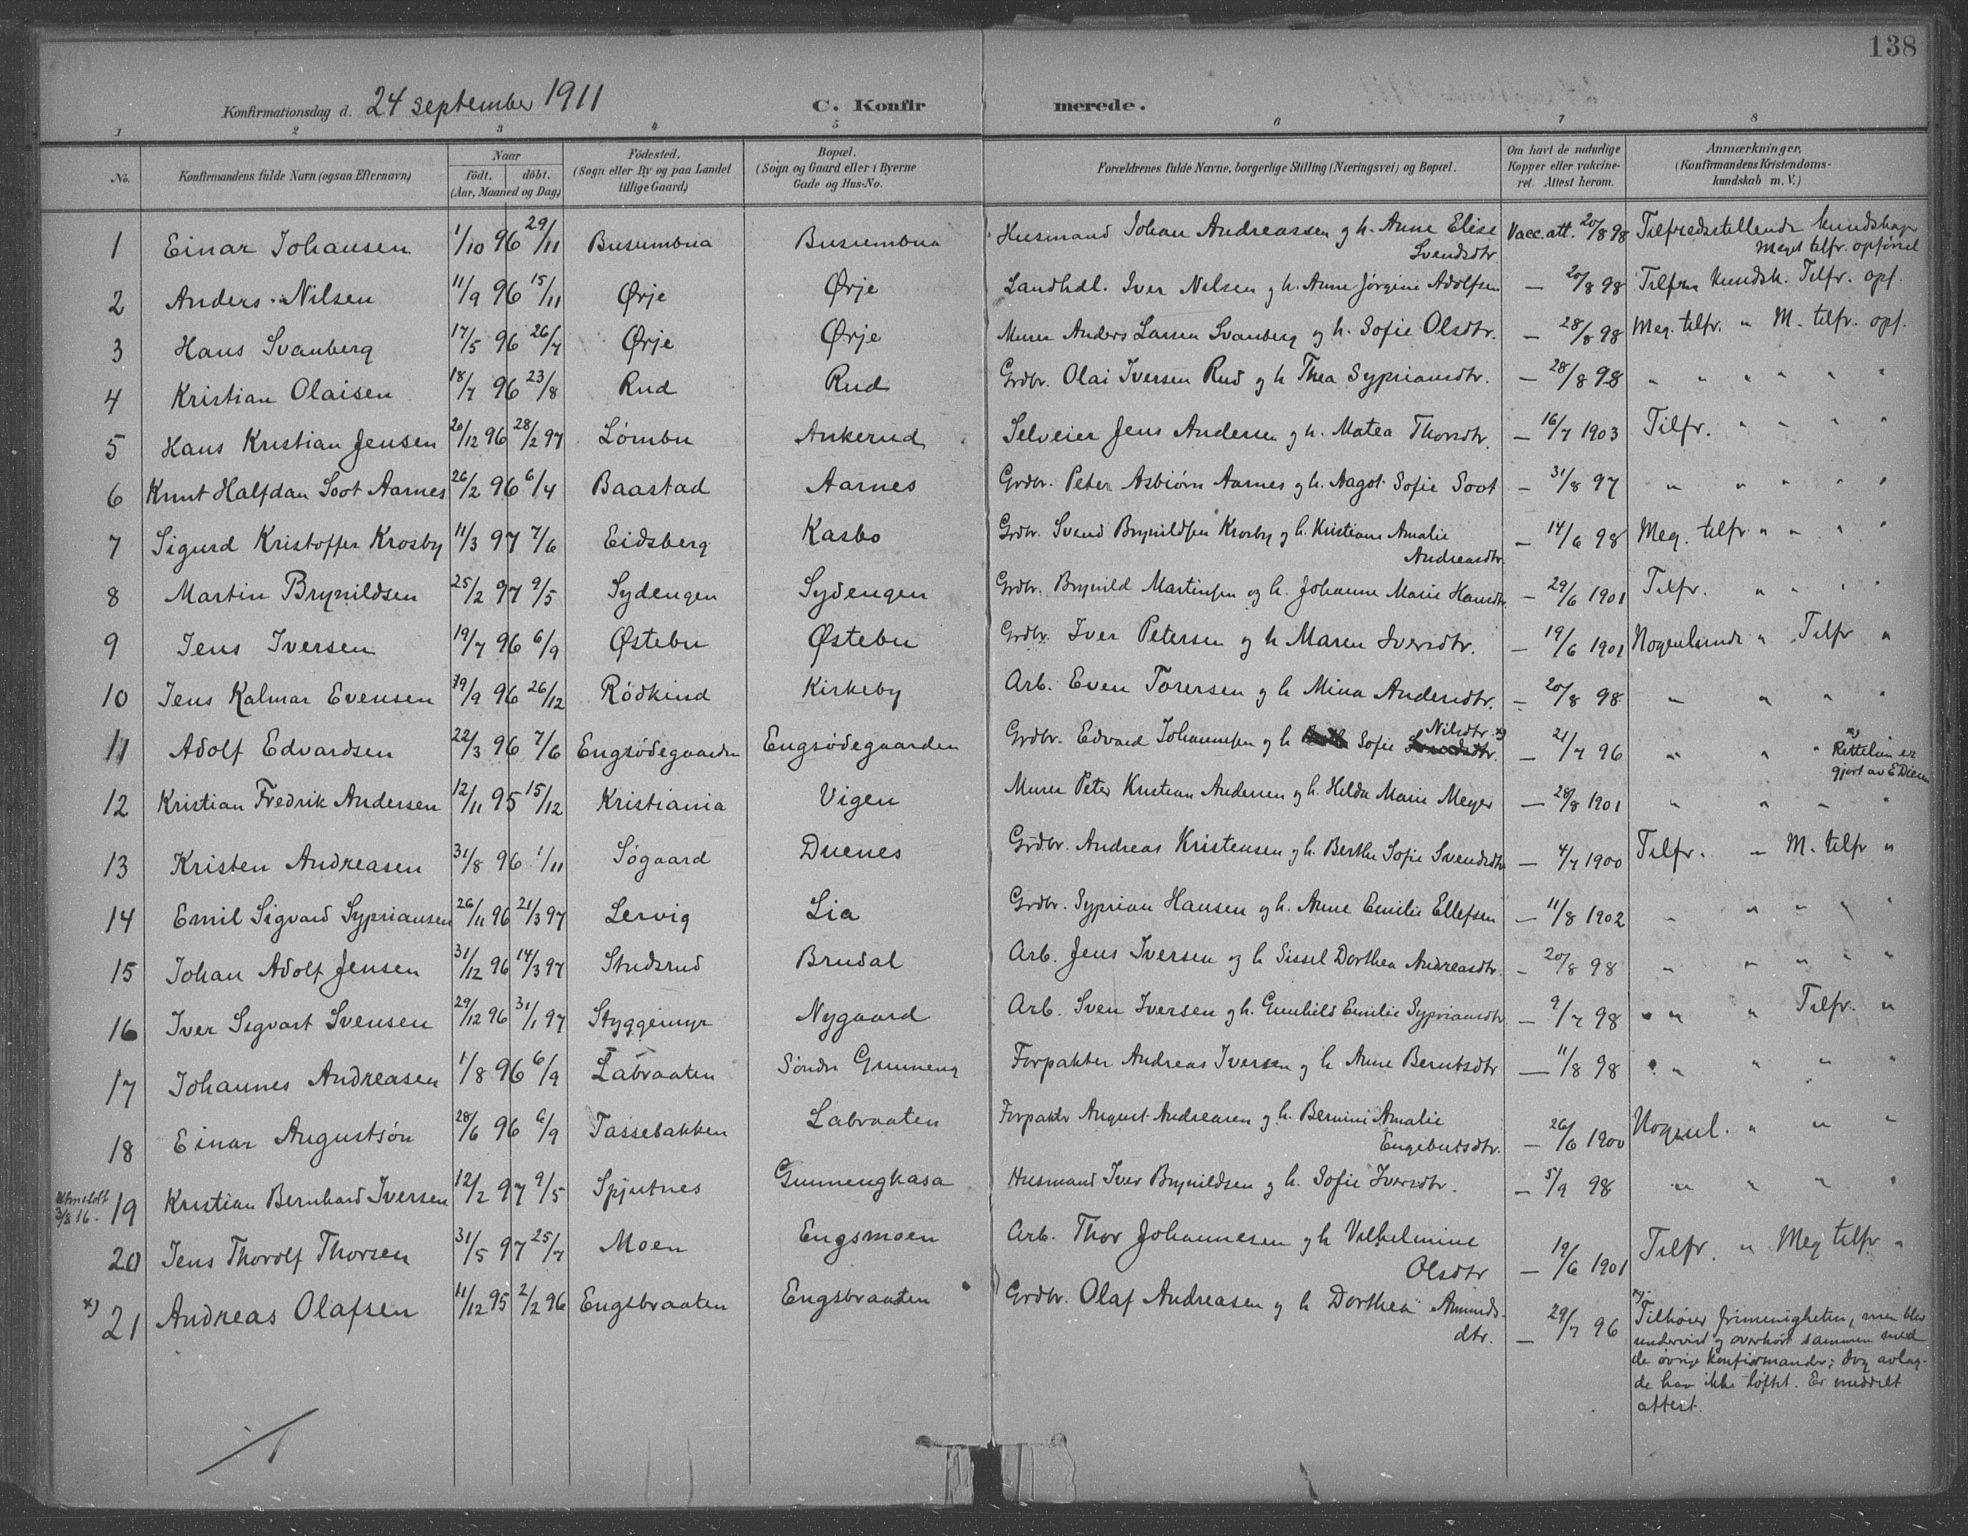 138
Konfirmationsdag d. 24 september 1911 C. Konfirmerede.
1 2 3 4 5 6 7 8
No. Konfirmandens fulde Navn (ogsaa Efternavn) Naar født. døbt. (Aar, Maaned og Dag) Fødested. (Sogn eller By og paa Landet tillige Gaard) Bopæl. (Sogn og Gaard eller i Byerne Gade og Hus-No. Forældrenes fulde Navne, borgerlige Stilling (Næringsvei) og Bopæl. Om havt de naturlige Kopper eller vakcineret. Attest herom. Anmærkninger. (Konfirmandens Kristendomskundskab m. V.)
1 Einar Johansen 1/10 96 29/11 Busumbua Busumbua Husmand Johan Andreassen g h. Anne Elise Svendsdtr. Vacc. att. 20/8 98 Tilfredsstillende kundskaper Meget tilfr. opførsel
2 Anders Nilsen 11/9 96 15/11 Ørje Ørje Landhdl. Iver Nilsen g h. Anne Jørgine Adolfsen — 20/8 98 Tilfrs kundsk. Tilfr. opf.
3 Hans Svanberg 17/5 96 26/7 Ørje Ørje Murer Anders Larsen Svanberg og h. Sofie Olsdtr. — 28/8 98 Meg. tilfr. " M. tilfr. opf.
4 Kristian Olaisen 18/7 96 23/8 Rud Rud Grdbr. Olai Iversen Rud og h Thea Sypriansdtr. — 28/8 98 " " " " " "
5 Hans Kristian Jensen 20/12 96 28/2 97 Lømbu Ankerud Selveier Jens Andersen g h. Matea Thorsdtr. — 16/7 1903 Tilfr. " " " "
6 Knut Halfdan Soot Aarnes 26/2 96 6/4 Baastad Aarnes Grdbr. Peter Asbiørn Aarnes g h. Aagot Sofie Soot — 31/8 97 " " " " "
7 Sigurd Kristoffer Krosby 11/3 97 7/6 Eidsberg Kasbo Grdbr. Svend Brynildsen Krosby g h. Kristiane Amalie Andreasdtr. — 14/6 98 Meg. tilfr " " " "
8 Martin Brynildsen 25/2 97 9/5 Sydengen Sydengen Grdbr. Brynild Martinsen og h. Johanne Marie Hansdtr. — 29/6 1901 Tilfr. " " " "
9 Jens Iversen 19/7 96 6/9 Østebu Østebu Grdbr. Iver Petersen og h Maren Iversdtr. — 19/6 1901 Nogenlunde " Tilfr "
10 Jens Kalmar Evensen 19/9 96 26/12 Rødkind Kirkeby Arb. Even Torersen g h Mina Andersdtr. — 20/8 98 " " " "
11 Adolf Edvardsen 22/3 96 7/6 Engsødegaarden Engsødegaarden Grdbr. Edvard Johannesen g h Sofie Nilsdtr. x) — 21/7 96 " " " x) Rettelsen er gjort av E Diesen
12 Kristian Fredrik Andersen 12/11 95 15/12 Kristiania Vigen Murer Peter Kristian Andersen g h. Hilda Marie Meyer — 28/8 1901 " " " "
13 Kristen Andreasen 31/8 96 1/11 Søgaard Duenes Grdbr. Andreas Kristensen g h. Berthe Sofie Svendsdtr — 4/7 1900 Tilfr. " M. tilfr "
14 Emil Sigvard Sypriansen 26/11 96 21/3 97 Lervig Lia Grdbr. Syprian Hansen og h. Anne Emilie Ellefsen — 11/8 1902 " " " " "
15 Johan Adolf Jensen 31/12 96 14/3 97 Studsrud Brudal Arb. Jens Iversen og h Sissel Dorthea Andreasdtr. — 20/8 98 " " " " "
16 Iver Sigvart Svensen 29/12 96 31/1 97 Styggemyr Nygaard Arb. Sven Iversen g h. Gunhild Emilie Sypriansdtr — 9/7 98 " " Tilfr. "
17 Johannes Andreasen 1/8 96 6/9 Labraaten Søndre Gunneng Forpakter Andreas Iversen g h Anne Berntsdtr — 11/8 98 " " " "
18 Einar Augustsøn 28/6 96 6/9 Tassebakken Labraaten Forpakter August Andreasen g h. Bernine Amalie Engebretsdtr. — 26/6 1900 Nogenl. " " "
Utmeldt 3/8 16. 19 Kristian Bernhard Iversen 12/2 97 9/5 Spjutnes Gunnengkasa Husmand Iver Brynildsen g h. Sofie Iversdtr. — 5/9 98 " " " "
20 Jens Thorolf Thorsen 31/5 97 25/7 Moen Engsmoen Arb. Thor Johannesen g h Vilhelmine Olsdtr — 19/6 1901 Tilfr. " Meg tilfr "
x) 21 Andreas Olafsen 11/12 95 2/2 96 Engsbraaten Engsbraaten Grdbr. Olaf Andreasen g h Dorthea Amundsdtr. — 29/7 96 x) Tilhører frimenigheten, men blev
undervist og overhørt sammen med
de øvrige konfirmander; dog avlagde
han ikke løftet. Er meddelt
attest.